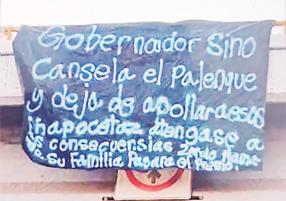 Gobernador Sino
Cansela el Palenque
y deja de apollar a esos
atengase a
consecuensias
su Familia Pagara el Presio